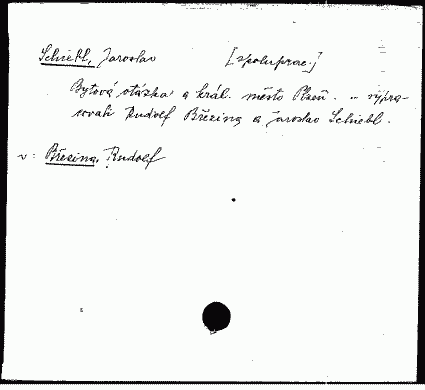 Schiebl, Jaroslav [spoluprac.]
Bytová otázka a král. město Plzeň. .. vypra-
covali Rudolf Březina a Jaroslav Schiebl.
v: Březina, Rudolf